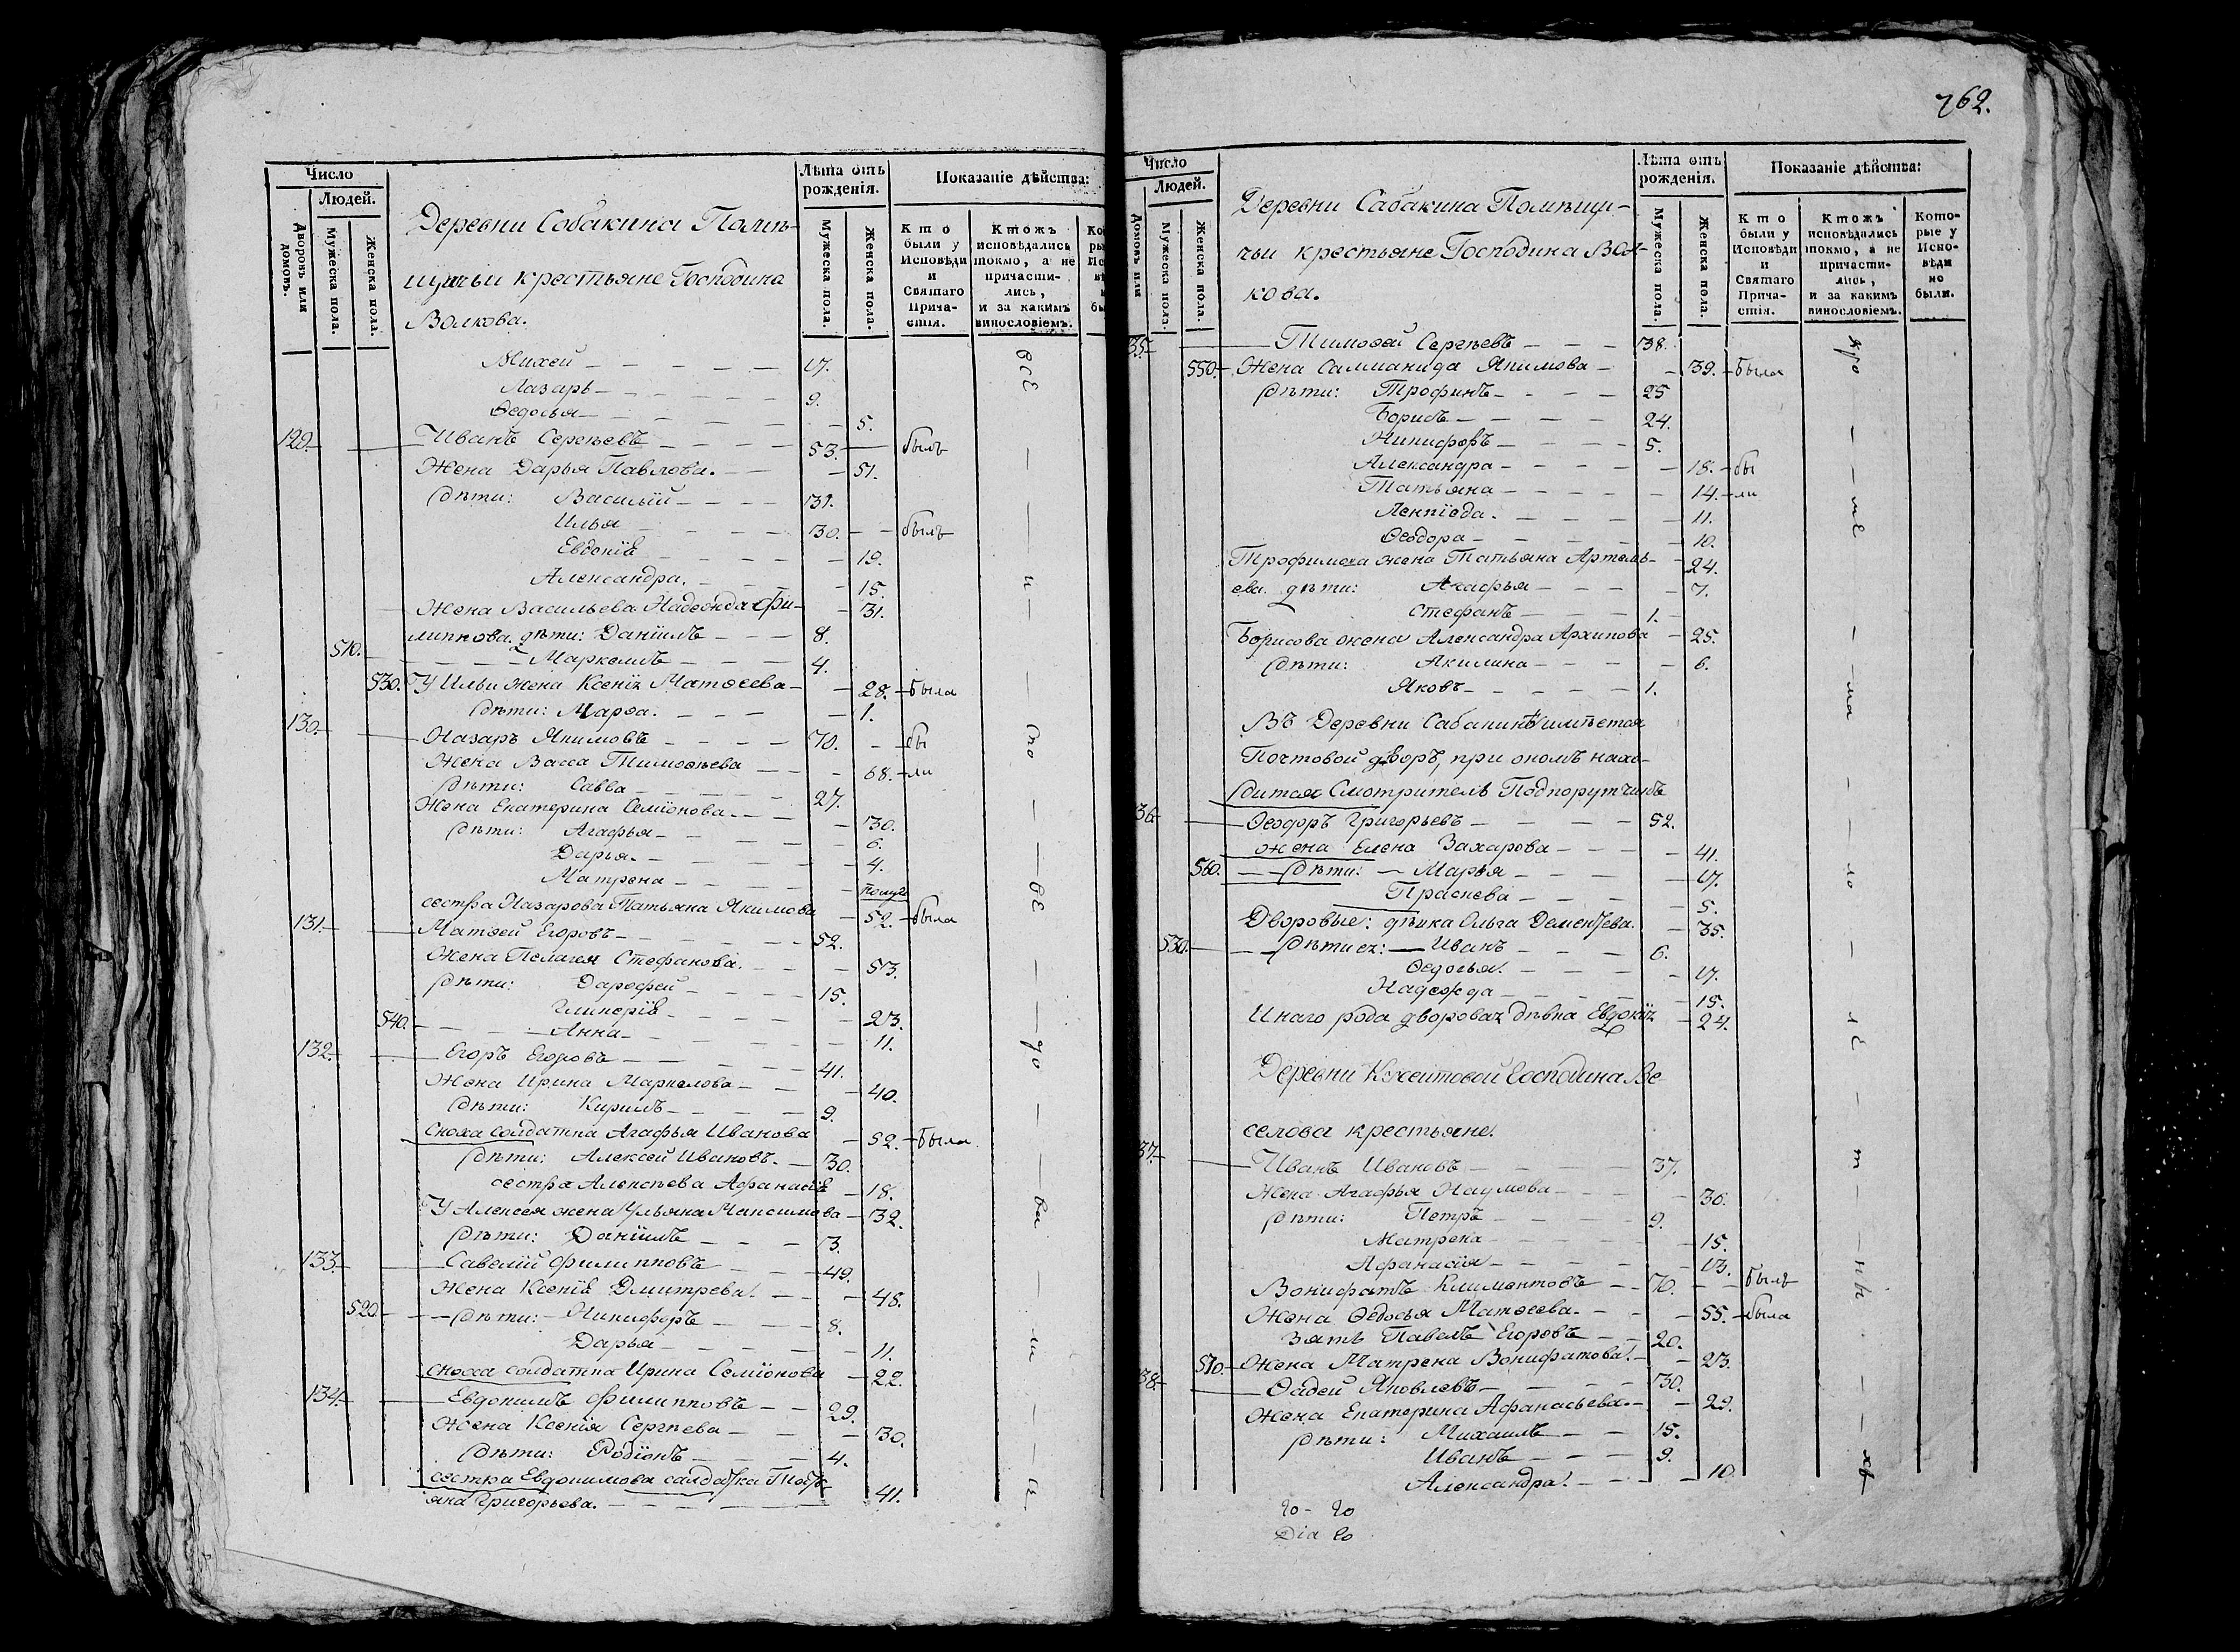 Число
Людей.
Дворовъ или домовъ.
Мужеска пола.
Женска пола.
Деревни Собакина Помѣ-
щичьи крестьяне Господина
Волкова.
Лѣта отъ рожденія.
Мужеска пола.
Женска пола.
Показаніе дѣйства:
Кто были у Исповѣди и Святаго Причастія.
Ктожъ исповѣдались токмо, а не причастились, и за какимъ винословіемъ.
Михей 17.
Лазарь 9.
Ѳедосья 5.
129. Иванъ Сергѣевъ 53. былъ
Жена Дарья Павлова. 51.
Дѣти: Василій 31.
Илья 30. былъ
Евдокія 19.
Александра. 15.
Жена Васильева Надежда Фи- 31.
липпова. дѣти: Даніилъ 8.
510. Маркеллъ 4.
530. У Ильи жена Ксенія Матѳеева 28. была
Дѣти: Марѳа. 1.
130. Назаръ Якимовъ 70. бы
Жена Васса Тимоѳеева 68. ли
Дѣти: Савва 27.
Жена Екатерина Семіонова. 30.
Дѣти: Агафья 6.
Дарья. 4.
Матрена полуго
сестра Назарова Татьяна Якимова 52. была
131. Матѳей Егоровъ 52.
Жена Пелагея Стефанова. 53.
Дѣти: Дарофей 15.
Гликерія 23.
540. Анна 11.
132. Егоръ Егоровъ 41.
Жена Ирина Маркелова 40.
Дѣти: Кирилъ 9.
сноха солдатка Агафья Иванова 52. была
Дѣти: Алексей Ивановъ. 30.
сестра Алексѣева Афанасія 18.
У Алексея жена Ульяна Максимова 32.
Дѣти: Даніилъ 3.
133. Савелій Филипповъ 49.
Жена Ксенія Дмитрева. 48.
520. Дѣти: Никифоръ 8.
Дарья 11.
сноха солдатка Ирина Семіонова 22.
134. Евдокимъ Филипповъ 29.
Жена Ксенія Сергѣева 30.
Дѣти: Родіонъ 4.
сестра Евдокимова салдатка Тать-
яна Григорьева. 41.
762.
Число
Людей.
домовъ или
Мужеска пола.
Женска пола.
Деревни Сабакина Помѣщи-
чьи крестьяне Господина Вол-
кова.
Лѣта отъ рожденія.
Мужеска пола.
Женска пола.
Показаніе дѣйства:
Кто были у Исповѣди и Святаго Причастія.
Ктожъ исповѣдались токмо, а не причастились, и за какимъ винословіемъ.
Которые у Исповѣди не были.
35. Тимоѳей Сергѣевъ 38.
550. Жена Салманида Якимова 39. была
Дѣти: Трофимъ 25
Борисъ 24.
Никифоръ 5.
Александра 18. бы
Татьяна 14. ли
11.
Ѳеодора 10.
Трофимова жена Татьяна Артемь- 24.
ева. дѣти: Агафья 7.
Стефанъ 1.
Борисова жена Александра Архипова 25.
Дѣти: Акилина 6.
Яковъ 1.
Въ Деревни Сабакинѣ имѣется
Почтовой дворъ, при ономъ нахо-
дится Смотритель Подпорутчикъ
36. Ѳеодоръ Григорьевъ 52.
жена Елена Захарова 41.
560. Дѣти: Марья 17.
Праскева 5.
Дворовые: дѣвка Ольга Дементьева. 35.
530. Дѣти ея: Иванъ 6.
Ѳедосья. 17.
Надежда 15.
Инаго рода дворовая дѣвка Евдокія 24.
Деревни Господина Ве-
селова крестьяне.
37. Иванъ Ивановъ 37.
Жена Агафья Наумова 36.
Дѣти: Петръ 9.
Матрена 15.
Афанасія 13.
Вонифатъ Климентовъ 70. былъ
Жена Ѳедосья Матѳеева. 55. была
Зять Павелъ Егоровъ 20.
570. Жена Матрена Вонифатова. 23.
38. Ѳадей Яковлевъ 30.
Жена Екатерина Афанасьева. 29.
Дѣти: Михаилъ 15.
Иванъ 9.
Александра. 10.
20 - 20